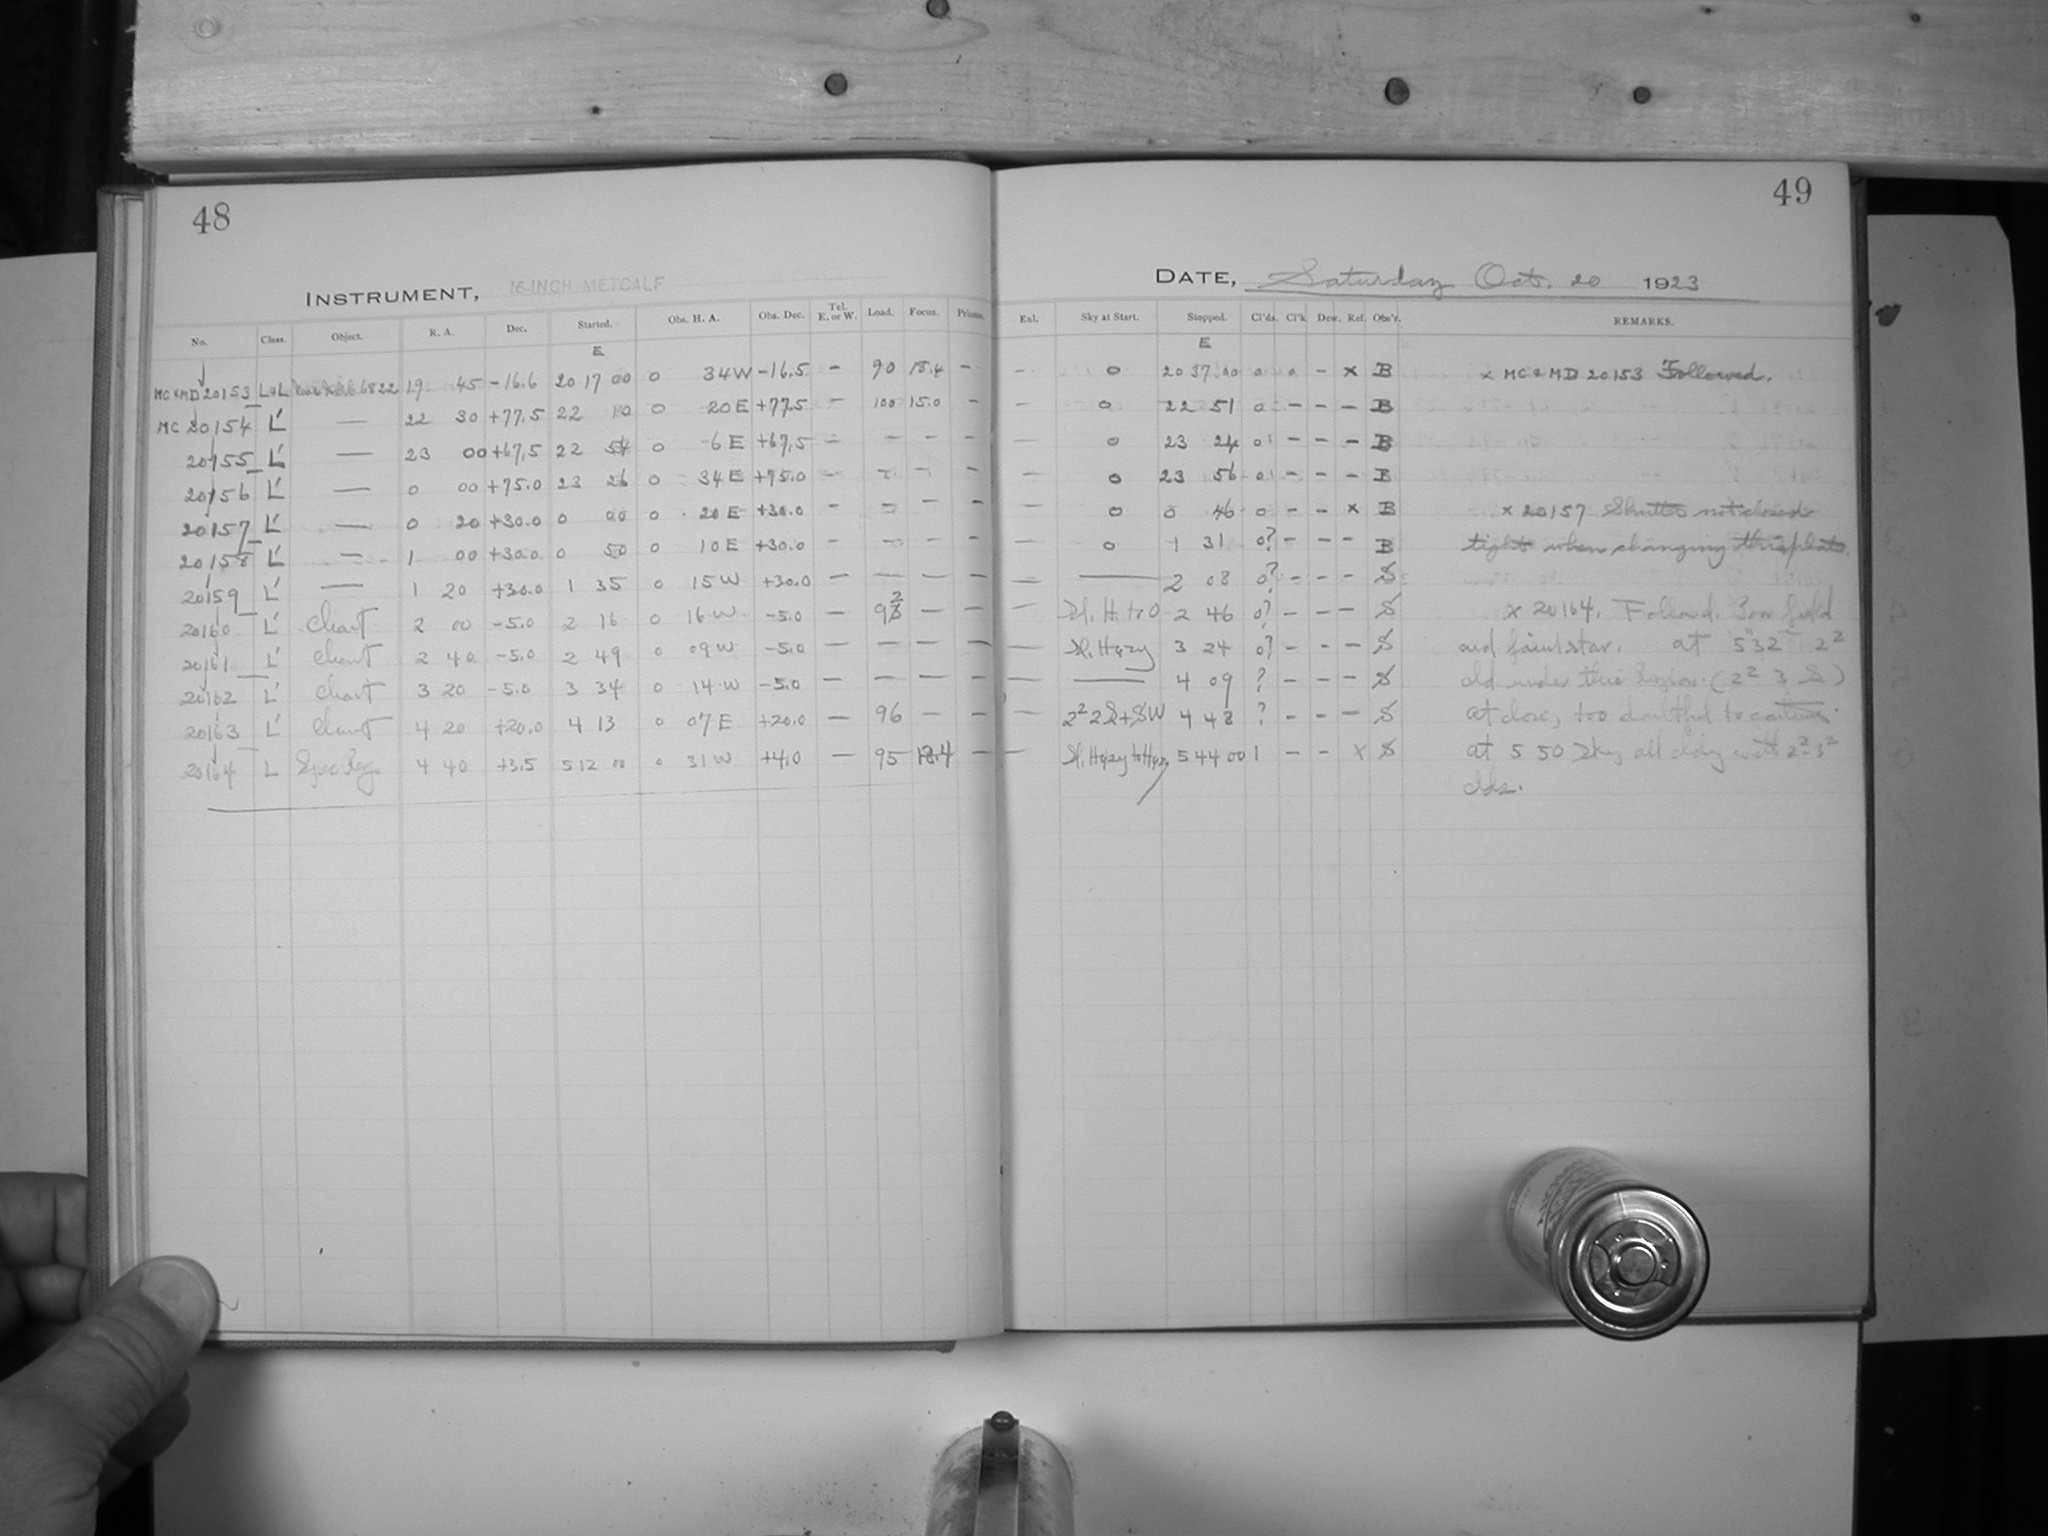 48
49
INSTRUMENT, 16-INCH METCALF
DATE, Saturday Oct. 20 1923
No. Class. Object. R. A. Dec. Started. Obs. H. A. Obs. Dec. Tel. E. or W. Load. Focus. Prisms. Enl. Sky at Start. Stopped. Cl'ds. Cl'k Dew. Ref. Obs'r. REMARKS.
E E
MC & MD 20153 L+L 6822 19 45 -16.6 20 17 00 0 34 W -16.5 - 90 - - 0 20 37 00 0 - x B x MC & MD 20153 Followed.
MC 20154 L' — 22 30 +77.5 22 10 0 20 E +77.5 - 100 15.0 - - 0 22 51 0 - - - B
20155 L' — 23 00 +67.5 22 54 0 6 E +67.5 - - - - - 0 23 24 0 - - - B
20156 L' — 0 00 +75.0 23 26 0 34 E +75.0 - - - - - 0 23 56 0 - - - B
20157 L' — 0 20 +30.0 0 00 0 20 E +30.0 - - - - - 0 0 46 0 - - x B x 20157 Shutter not closed
20158 L' — 1 00 +30.0 0 50 0 10 E +30.0 - - - - - 0 1 31 0? - - - B tight when changing this plate.
20159 L' — 1 20 +30.0 1 35 0 15 W +30.0 - - - - - — 2 08 0? - - - S
20160 L' Chart 2 00 -5.0 2 16 0 16 W -5.0 - 92 - - - Sl. H. to 0 2 46 0? - - - S x 20164. Followd. Poor field
20161 L' Chart 2 40 -5.0 2 49 0 09 W -5.0 - - - - - Sl. Hazy 3 24 0? - - - S and faint star. at 5 32 2²
20162 L' Chart 3 20 -5.0 3 34 0 14 W -5.0 - - - - - — 4 09 ? - - - S cld under this region. (2² 3 S)
20163 L' Chart 4 20 +20.0 4 13 0 07 E +20.0 - 96 - - - 2² 2 S+SW 4 48 ? - - - S at close, too doubtful to continue.
20164 L 4 40 +3.5 5 12 00 0 31 W +4.0 - 95 18.4 - - Sl. Hazy to Hazy 5 44 00 1 - - x S at 5 50 Sky all cldy with 2² 3²
clds.